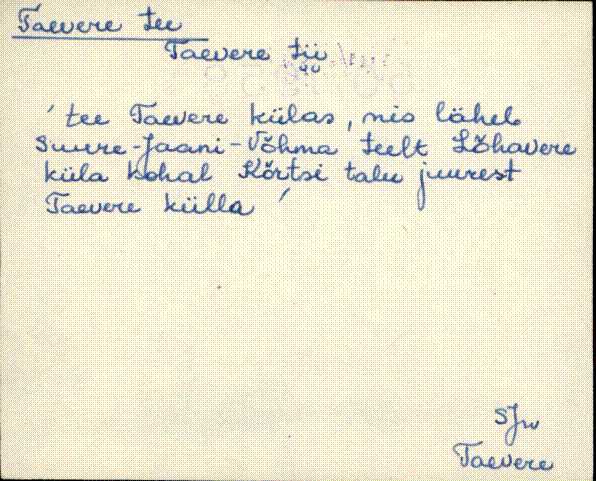 Taevere tee
Taevere tii
' tee Taevere külas, mis lähel
Suure-Jaani-Võhma teelt Lõhavere
küla kohal Kõrtsi talu juurest
Taevere külla '
SJn
Taevere